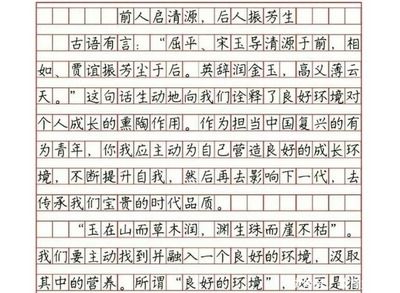 前人启清源，后人振芳生
古语有言：“屈平、宋玉导清源于前，相
如、贾谊振芳尘于后。英辞润金玉，高义薄云
天。”这句话生动地向我们诠释了良好环境对
个人成长的熏陶作用。作为担当中国复兴的有
为青年，你我应主动为自己营造良好的成长环
境，不断提升自我，然后再去影响下一代，去
传承我们宝贵的时代品质。
“玉在山而草木润，渊生珠而崖不枯”。
我们要主动找到并融入一个良好的环境，汲取
其中的营养。所谓“良好的环境”，必不是指